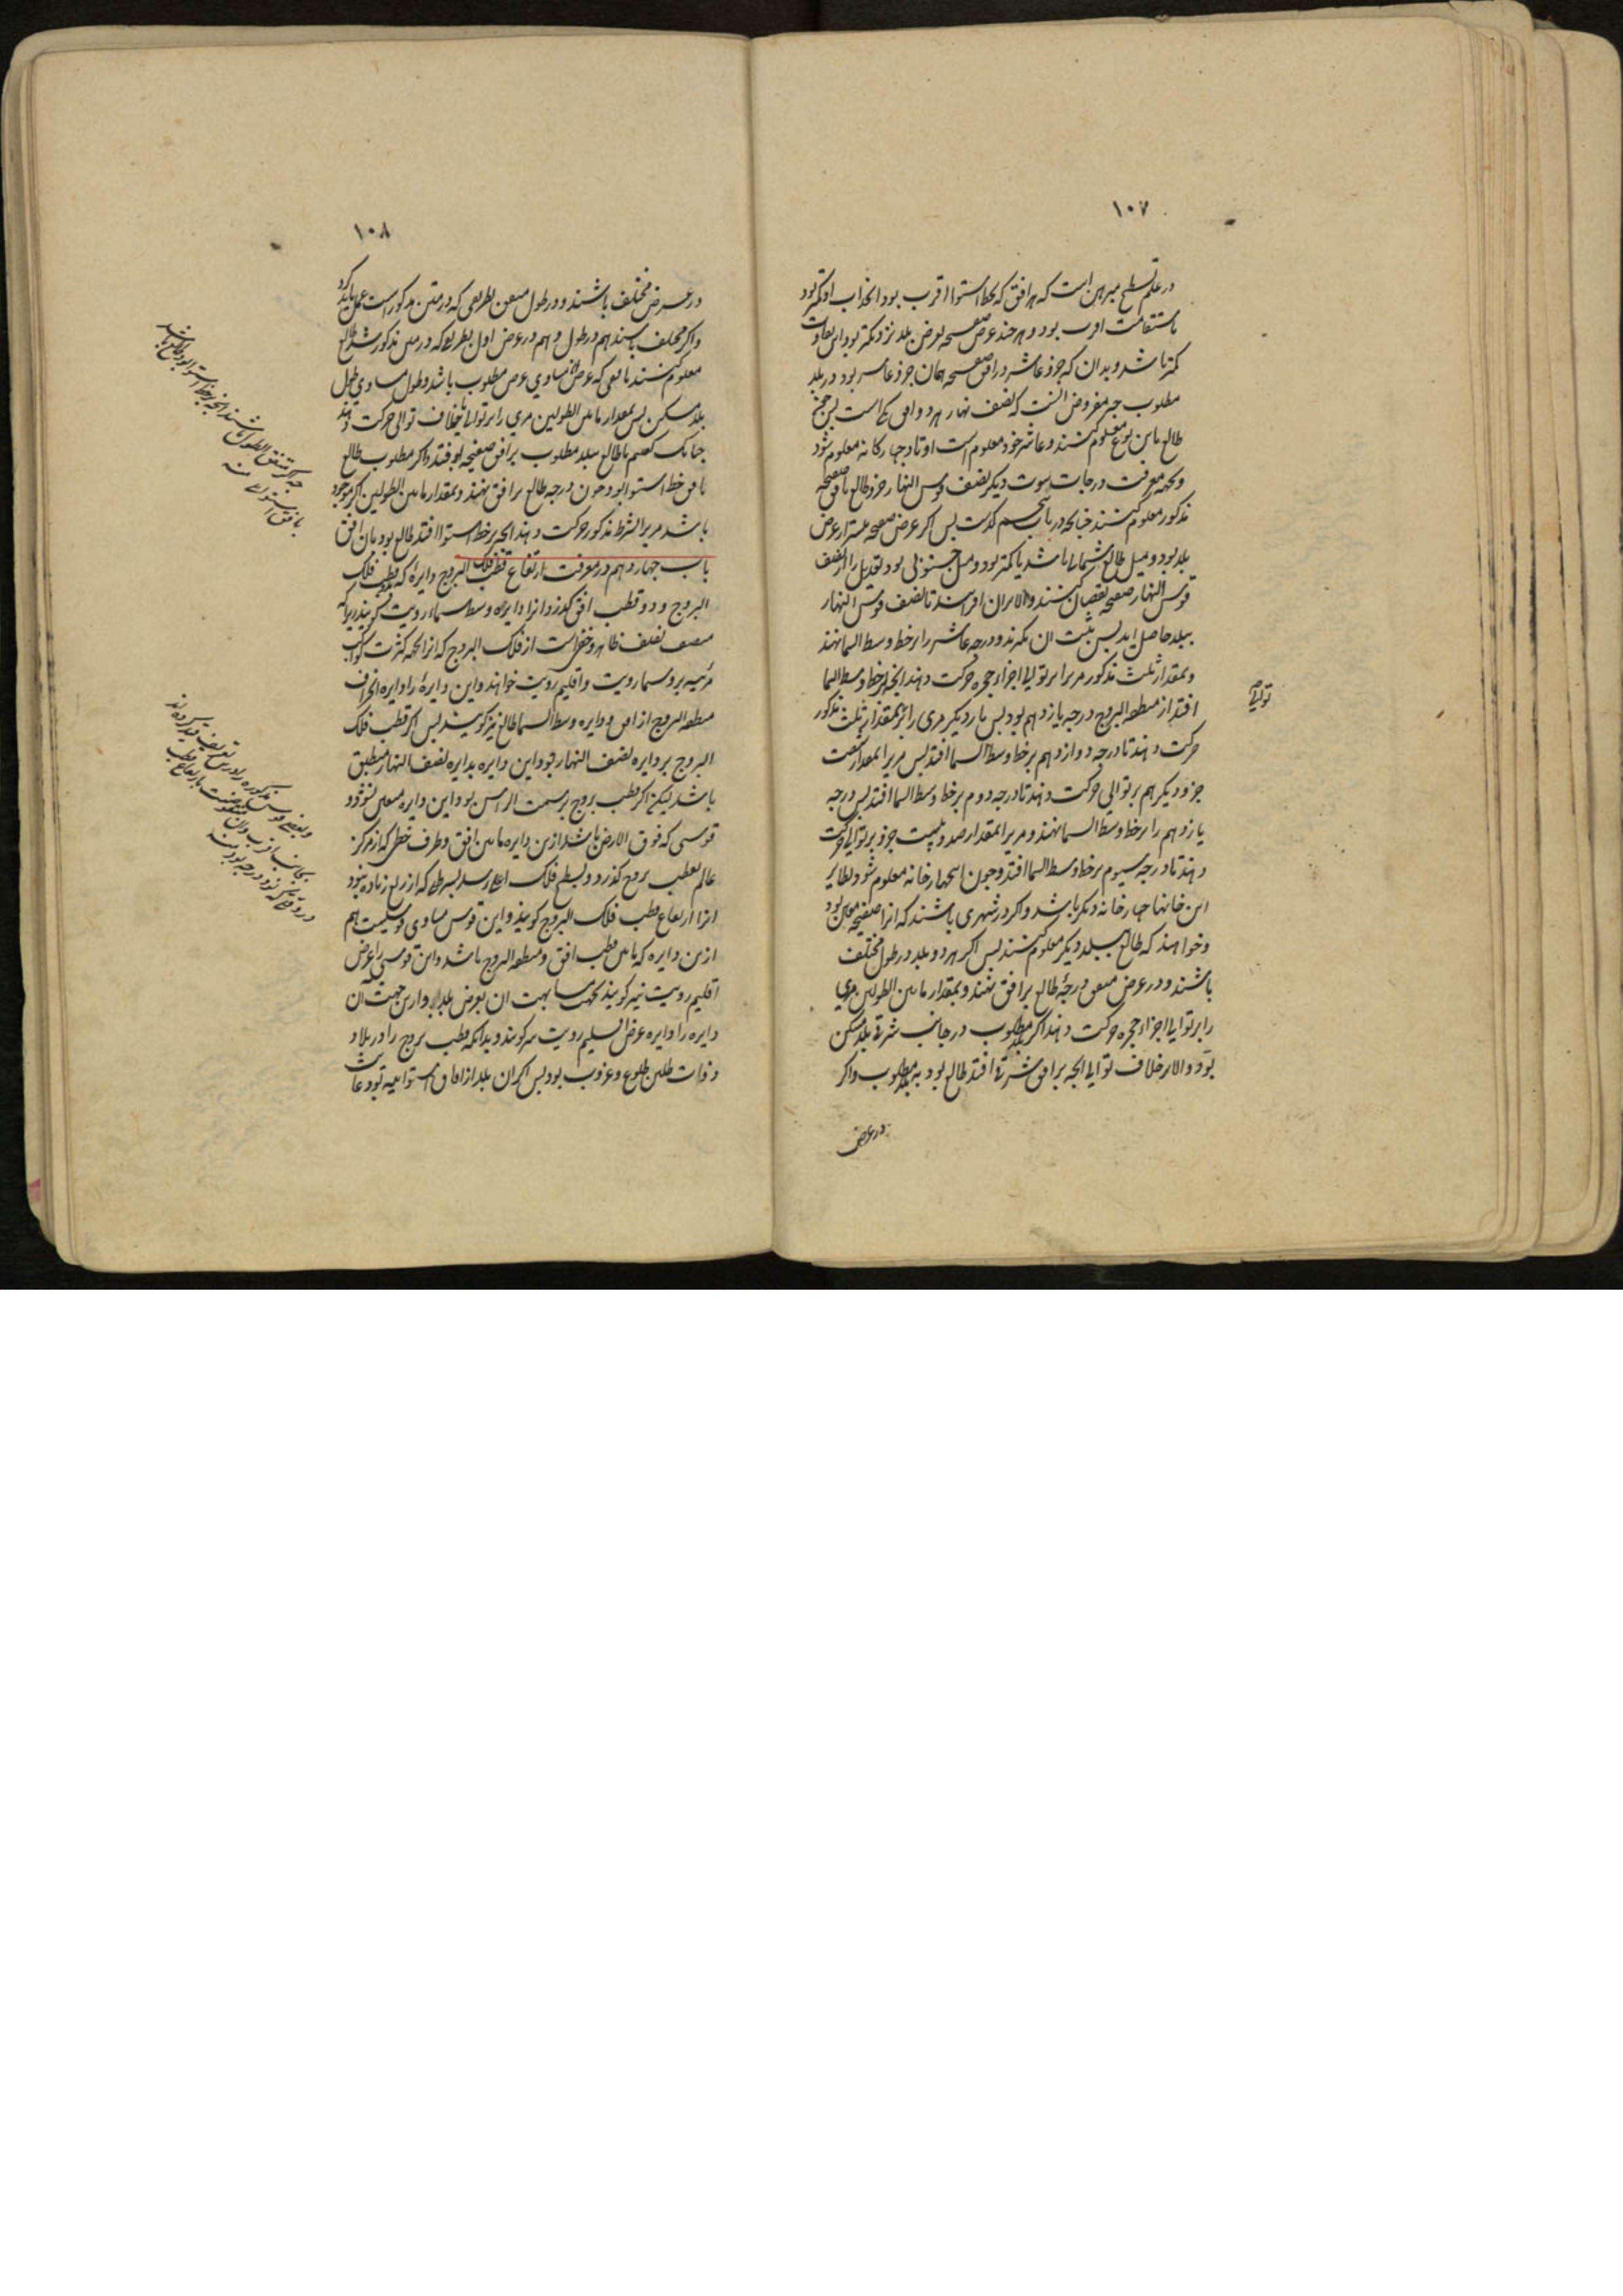 ١٠٧
در علم تسطیح مبرهن است که هر افق که بخط استوا اقرب بود انجذاب او کمتر بود
باستقامت اقرب بود و هر چند عرض صفحه بعرض بلد نزدیکتر بود این تفاوت
کمتر باشد و بدان که جزو عاشر در افق صفحه همان جزو عاشر بود در بلد
مطلوب چه مفروض آنست که نصف نهار هر دو افق یکی است پس چون
طالع باین نوع معلوم کنند و عاشر خود معلوم است اوتاد چهارکانه معلوم شود
و بجهة معرفت درجات بیوت دیکر نصف قوس النهار جزو طالع بافق صفحه
مذکور معلوم کنند چنانچه در باب پنجم کذشت پس اکر عرض صفحه بیشتر از عرض
بلد بود و میل طالع شمالی باشد یا کمتر بود و میل جنوبی بود تعدیل را از نصف
قوس النهار صفحه نقصان کنند والا بران افزایند تا نصف قوس النهار
ببلد حاصل اید پس ثلث ان بکیرند و درجه عاشر را بر خط وسط السما نهند
و بمقدار ثلث مذکور مری را بر توالی اجزاء حجره حرکت دهند انچه بر خط وسط السما
افتد از منطقه البروج درجه یازدهم بود پس بار دیکر مری را بمقدار ثلث مذکور
حرکت دهند تا درجه دوازدهم بر خط وسط السما افتد پس مری را بمقدار شصت
جزو دیکر هم بر توالی حرکت دهند تا درجه دوم بر خط وسط السما افتد پس درجه
یازدهم را بر خط وسط السما نهند و مری را بمقدار صد و بیست جزو بر توالی حرکت
دهند تا درجه سیوم بر خط وسط السما افتد و چون این چهار خانه معلوم شود نظایر
این خانها چهار خانه دیکر باشد و اکر در شهری باشند که انرا صفیحه معین بود
و خواهند که طالع ببلد دیکر معلوم کنند پس اکر هر دو بلد در طول مختلف
باشند و در عرض متفق درجهٔ طالع بر افق نهند و بمقدار مابین الطولین مری
را بر توالی اجزاء حجره حرکت دهند اکر بلد مطلوب در جانب شرقی بلد مسکن
بود والا بر خلاف توالی انچه بر افق شرقی افتد طالع بود به بلد مطلوب و اکر
در عرض
توالی
١٠٨
در عرض مختلف باشند و در طول متفق بطریقی که در متن مذکور است عمل باید کرد
و اکر مختلف باشند هم در طول و هم در عرض اول بطریق که در متن مذکور شد طالع
معلوم کنند بافقی که عرضش مساوی عرض مطلوب باشد و طول مساوی طول
بلد مسکن پس بمقدار مابین الطولین مری را بر توالی یا بخلاف توالی حرکت دهند
چنانک کفتیم تا طالع ببلد مطلوب بر افق صفیحه او فتد و اکر مطلوب طالع
بافق خط استوا بود چون درجه طالع بر افق نهند و بمقدار مابین الطولین اکر موجود
باشد مری را بشرط مذکور حرکت دهند انچه بر خط استوا افتد طالع بود بان افق
باب چهاردهم در معرفت ارتفاع قطب فلک البروج دایرهٔ که بقطب فلک
البروج و دو قطب افق کذرد انرا دایرهٔ وسط سماء رویت کویند زیرا که
منصف نصف ظاهر و خفی است از فلک البروج که انرا بجهة کثرت کواکب
مرئیه برو سماء رویت و اقلیم رویت خوانند و این دایره را دایره انحراف
منطقه البروج از افق و دایره وسط السما طالع نیز کویند پس اکر قطب فلک
البروج بر دایره نصف النهار بود این دایره بدایره نصف النهار منطبق
باشد لیکن اکر قطب بروج بر سمت الراس بود این دایره معین نشود و
قوسی که فوق الارض باشد ازین دایره مابین افق و طرف خطی که از مرکز
عالم بقطب بروج کذرد و بسطح فلک اعلی رسد بشرطی که از ربع زیاده نبود
انرا ارتفاع قطب فلک البروج کویند و این قوس مساوی قوسیست هم
ازین دایره که مابین قطب افق و منطقه البروج باشد و این قوس را عرض
اقلیم رویت نیز کویند بجهت مشابهت ان بعرض بلد و ازین جهت ان
دایره را دایره عرض اقلیم رویت نیز کویند و بدانکه قطب بروج را در بلاد
ذوات ظلین طلوع و غروب بود پس اکر ان بلد از افاق استوائیه بود
چه اکر متفق الطول باشند انچه بر خط استوا بود طالع باشد
بافق استوا منه
و بعضی قوس مذکوره را